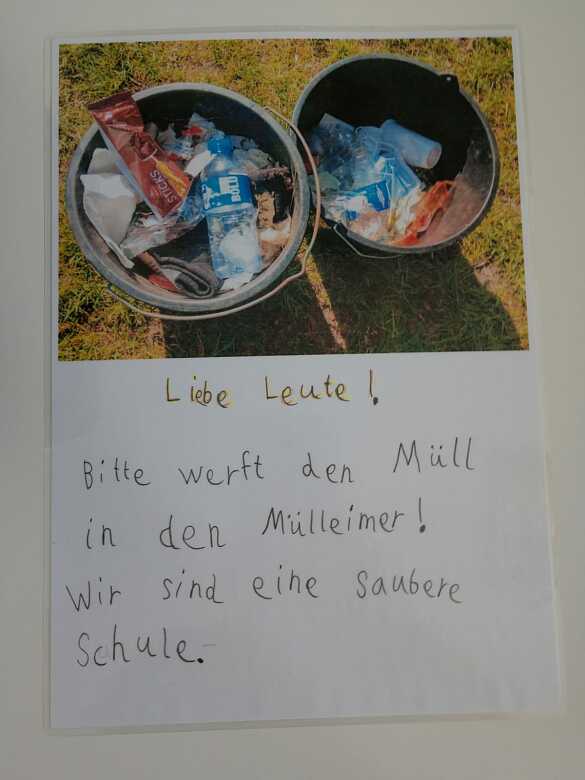 STICKS
BOLU
Liebe Leute!
Bitte werft den Müll
in den Mülleimer!
Wir sind eine saubere
Schule.